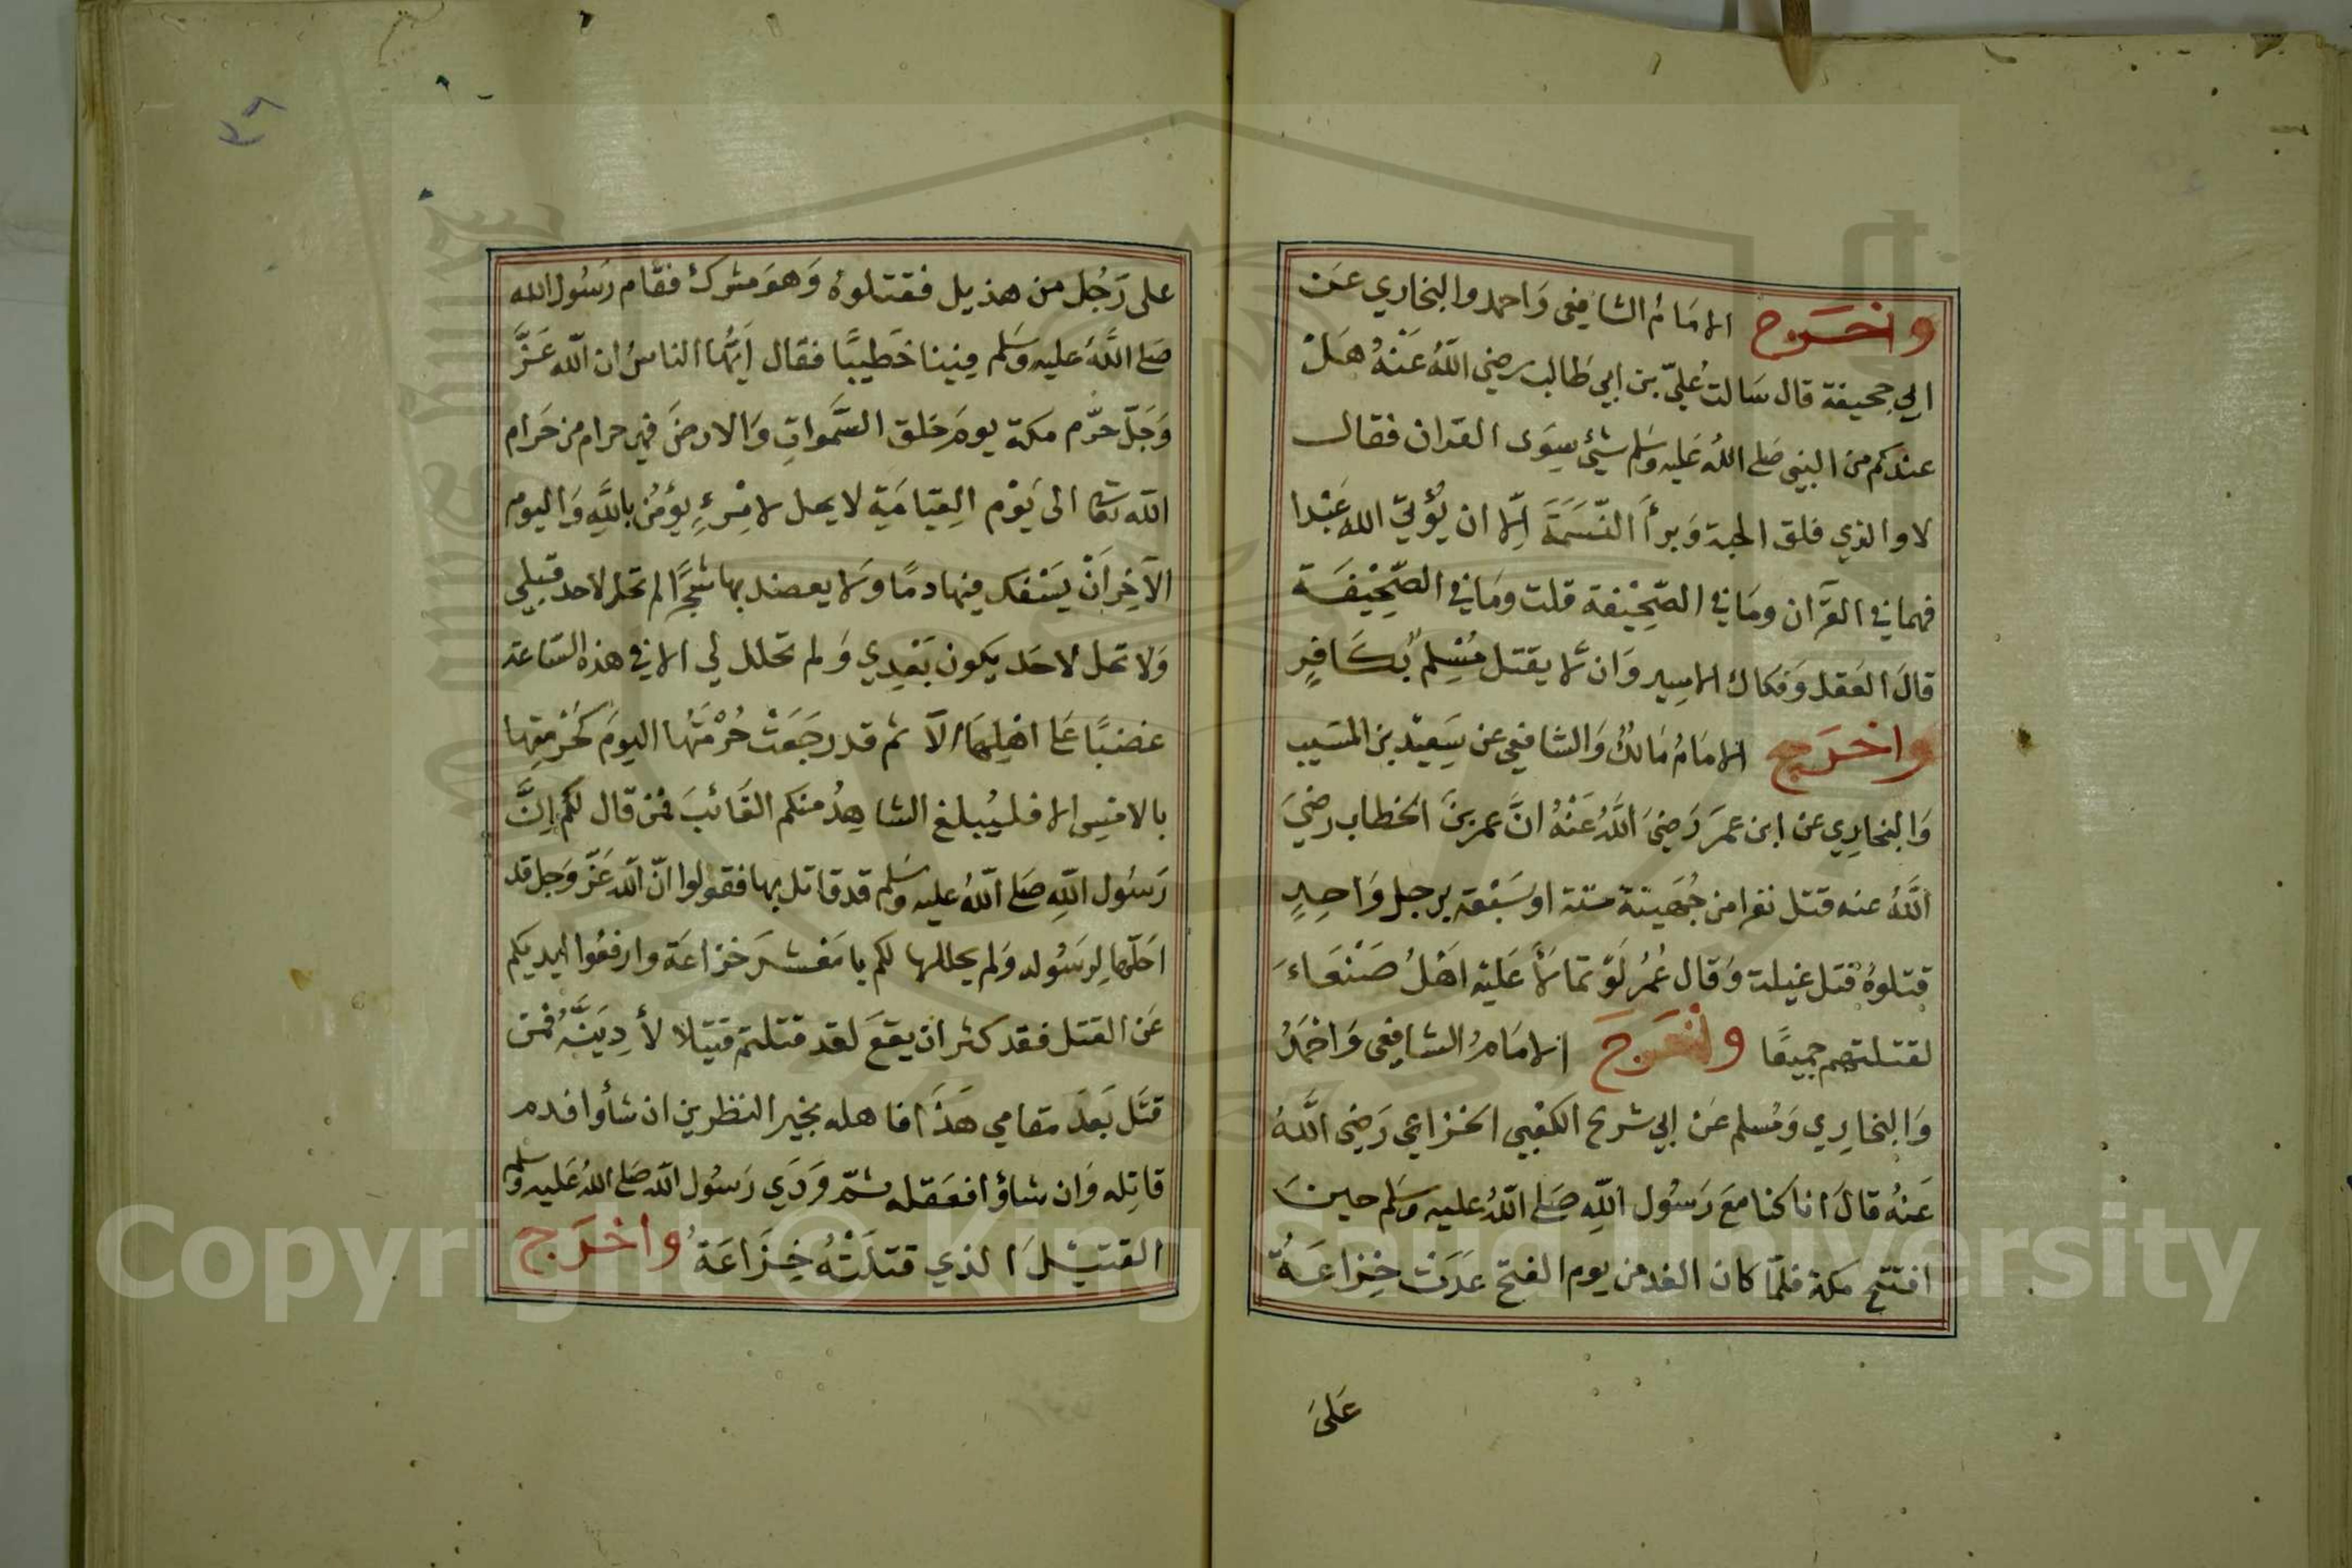 واخرج الامَامُ الشافِعى وَاحمد والبخاري عَن
ابي جحيفة قال سَالت عُليّ بن ابي طَالب رضي اللّهُ عَنْهُ هَلْ
عندكم من النبي صَلى اللهُ عَليه وسَلم شَيْئ سِوَى القران فقال
لا والذي فلق الحبة وَبرأَ النّسَمَةَ اِلّا ان يُؤتيَ الله عَبْدا
فهما في القرآن ومَا في الصّحِيْفة قلت ومَا في الصّحِيْفَة
قالَ العَقل وَفكاك الاسِير وَان لا يقتل مُسْلِم بكَافِرٍ
واخرَج الامَامُ مَالكُ وَالشافِعي عن سَعِيْد بن المسَيب
وَالبخارِي عن ابن عمرَ رَضيَ اللَّهُ عَنْهُ انَّ عمر بنَ الخطاب رضيَ
اللَّهُ عنه قتل نفرا من جُهَينة ستة او سَبْعَة برجل وَاحِدٍ
قتلوهُ قتل غيلة وَقال عُمَرُ لَوْ تمالأَ عَليْه اهْلُ صَنْعَاءَ
لقتلتهم جميعًا واخرَجَ الامَامُ الشافِعى وَاحْمَدُ
وَالبخارِي وَمُسلم عَنْ ابي شريح الكعْبي الخزاعِي رَضِى اللَّهُ
عَنْهُ قالَ انا كنا مَعَ رَسُول اللّهِ صَلى اللّهُ عليه وسَلم حينَ
افتتح مكة فلمّا كان الغد من يوم الفتح عَدَتْ خِزاعَةُ
عَلىَ
على رَجُل من هذيل فقتلوهُ وَهوَ مشرك فقَام رَسُول الله
صَلى اللَّهُ عليه وَسَلم فينا خَطيبًا فقال اَيّهُا الناسُ ان اللّه عَزَّ
وَجَلّ حَرّم مكة يومَ خلق السَّموَاتِ وَالارضَ فهي حرام من حَرام
اللّه تعالى الى يَوْم القِيَامَةِ لا يحل لامْرِءٍ يؤمُن باللَّهِ وَاليوم
الآخِرِ اَنْ يَسْفك فيهَا دمًا وَلا يعضد بها شَجَرًا لم تحل لاحد قبْلِي
وَلا تحل لاحَد يكون بَعْدِي وَلم تحلل لي الا في هذه السّاعة
غضبًا عَلى اهْلِهَا اَلَا ثم قد رجَعَتْ حُرْمَتُها اليومَ كَحُرْمتِها
بالامسِ الا فليُبلغ الشاهِدُ منكم الغَائبَ فمنْ قال لَكُم اِنَّ
رَسُول اللّهِ صَلى اللّهُ عليه وسَلم قد قاتل بها فقولوا انّ اللّه عَزّ وَجل قد
احَلّهَا لِرسُوله وَلم يحللها لكم يا مَعْشرَ خزاعَة وارفعُوا ايديكم
عَن القتل فقد كثر ان يقعَ لقد قتلتم قتيلا لأَدِيَنَّهُ فمَن
قتَل بَعدَ مقامي هَذَا فاهله بخير النظرين ان شأوا فدم
قاتِله وَان شاؤا فعَقله ثمّ وَدَي رَسُول اللّه صَلى اللهُ عَليه وسلم
القتيْلَ الذي قتلَتْهُ خِزَاعَةُ واخرَج